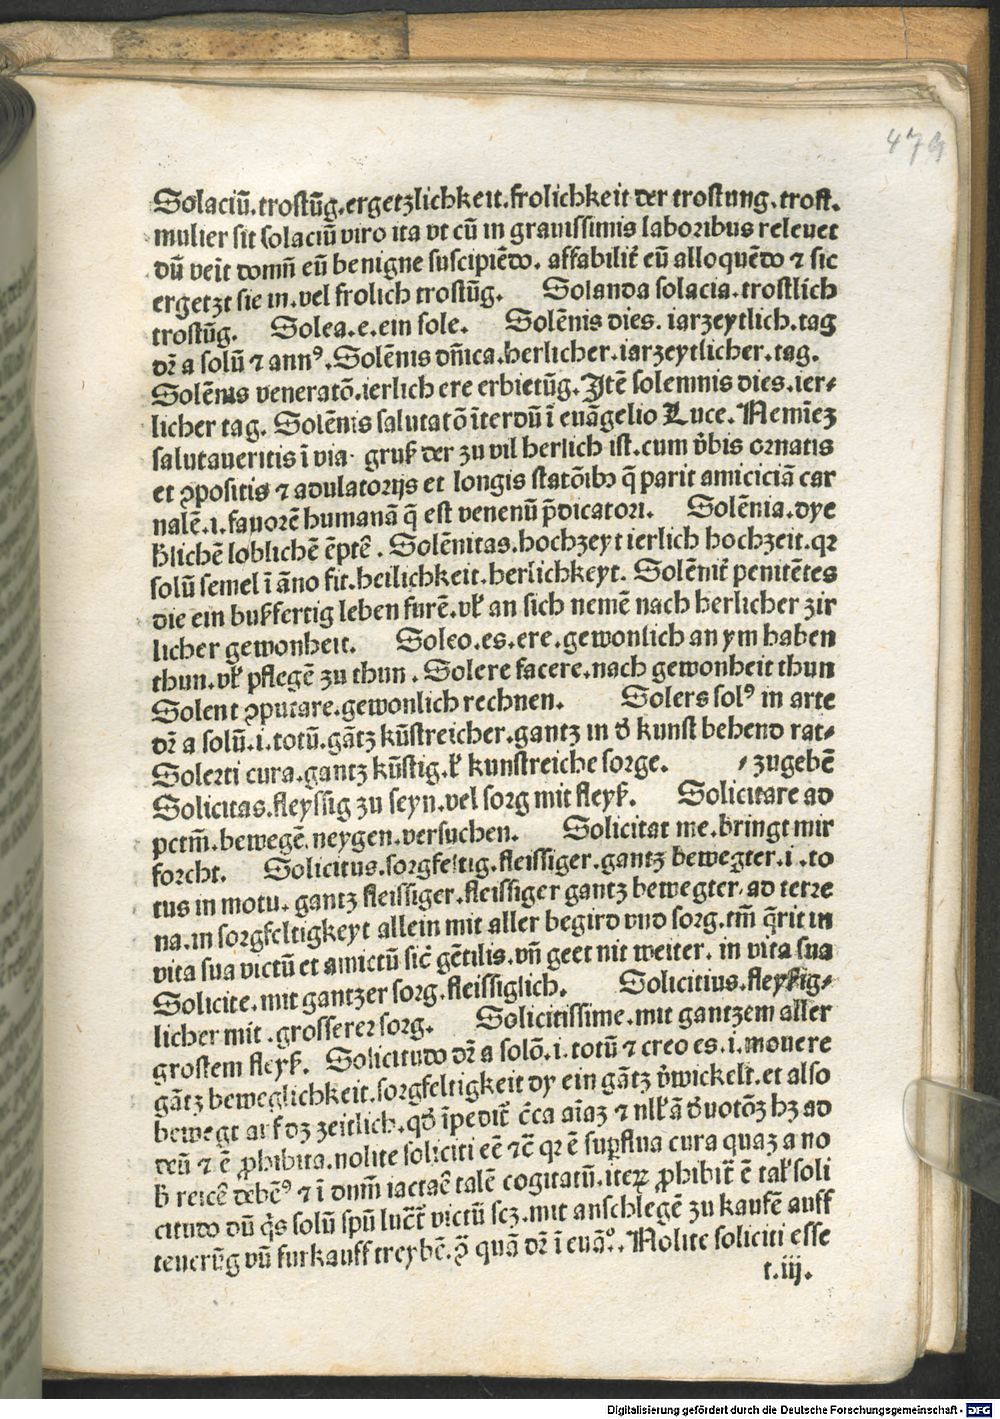 479
Solaciū. trostūg. ergetzlichkeit. frolichkeit der trostung. trost.
mulier sit solaciū viro ita vt cū in grauissimis laboribus releuet
dū veĩt domū eū benigne suscipiēdo. affabilit̃ eū alloquēdo ⁊ sic
ergetzt sie in. vel frolich trostūg. Solanda solacia. trostlich
trostūg. Solea. e. ein sole. Solēnis dies. iarzeytlich. tag
dr̄ a solū ⁊ annꝰ. Solēnis dñica. herlicher. iarzeytlicher. tag.
Solēnis veneratō. ierlich ere erbietūg. Itē solemnis dies. ier⸗
licher tag. Solēnis salutatō īterdū ī euāgelio Luce. Neminez
salutaueritis ī via. gruß der zu vil herlich ist. cum v̄bis ornatis
et ꝓpositis ⁊ adulatorijs et longis statōibꝫ q̄ parit amiciciā car
nalē. i. fauorē humanā q̄ est venenū p̄dicatori. Solēnia. dye
h̄lichē loblichē ēptē. Solēnitas. hochzeyt ierlich hochzeit. qꝛ
solū semel ī āno fit. heilichkeit. herlichkeyt. Solēnit̃ penitētes
die ein bußfertig leben furē. vl̃ an sich nemē nach herlicher zir
licher gewonheit. Soleo. es. ere. gewonlich an ym haben
thun. vl̃ pflegē zu thun. Solere facere. nach gewonheit thun
Solent ꝯputare. gewonlich rechnen. Solers solꝰ in arte
dr̄ a solū. i. totū. gātz kūstreicher. gantz in d̄ kunst behend rat⸗
Solerti cura. gantz kūstig. l̃ kunstreiche sorge. ⸗zugebē
Solicitas. fleyssig zu seyn. vel sorg mit fleyß. Solicitare ad
pctm̄. bewegē. neygen. versuchen. Solicitat me. bringt mir
forcht. Solicitus. sorgfeltig. fleissiger. gantz bewegter. i. to
tus in motu. gantz fleissiger. fleissiger gantz bewegter. ad terre
na. in sorgfeltigkeyt allein mit aller begird vnd sorg. tm̄ q̄rit in
vita sua victū et amictū sic̄ gētilis. vn̄ geet nit weiter. in vita sua
Solicite. mit gantzer sorg. fleissiglich. Solicitius. fleyßig⸗
licher mit. grosserer sorg. Solicitissime. mit gantzem aller
grostem fleyß. Solicitudo dr̄ a solō. i. totū ⁊ creo es. i. mouere
gātz beweglichkeit. sorgfeltigkeit dy ein gātz v̄wickelt. et also
bewegt auf dz zeitlich. qd̄ īpedit̃ c̄ca aīaz ⁊ nll̃ā d̄uotōz hz ad
deū ⁊ ē ꝓhibita. nolite soliciti eē ⁊c̄ qꝛ ē suꝑflua cura quaz a no
b̄ reicē debēꝰ ⁊ ī dnm̄ iactaē talē cogitatū. iteꝝ ꝓhibit̃ ē tal̃ soli
citudo dū q̇s solū spū luc̄t̃ victū scz. mit anschlegē zu kaufē auff
teuerūg vn̄ furkauff treybē. ꝓ quā dr̄ ī euāº. Nolite soliciti esse
t. iij.
Digitalisierung gefördert durch die Deutsche Forschungsgemeinschaft - DFG